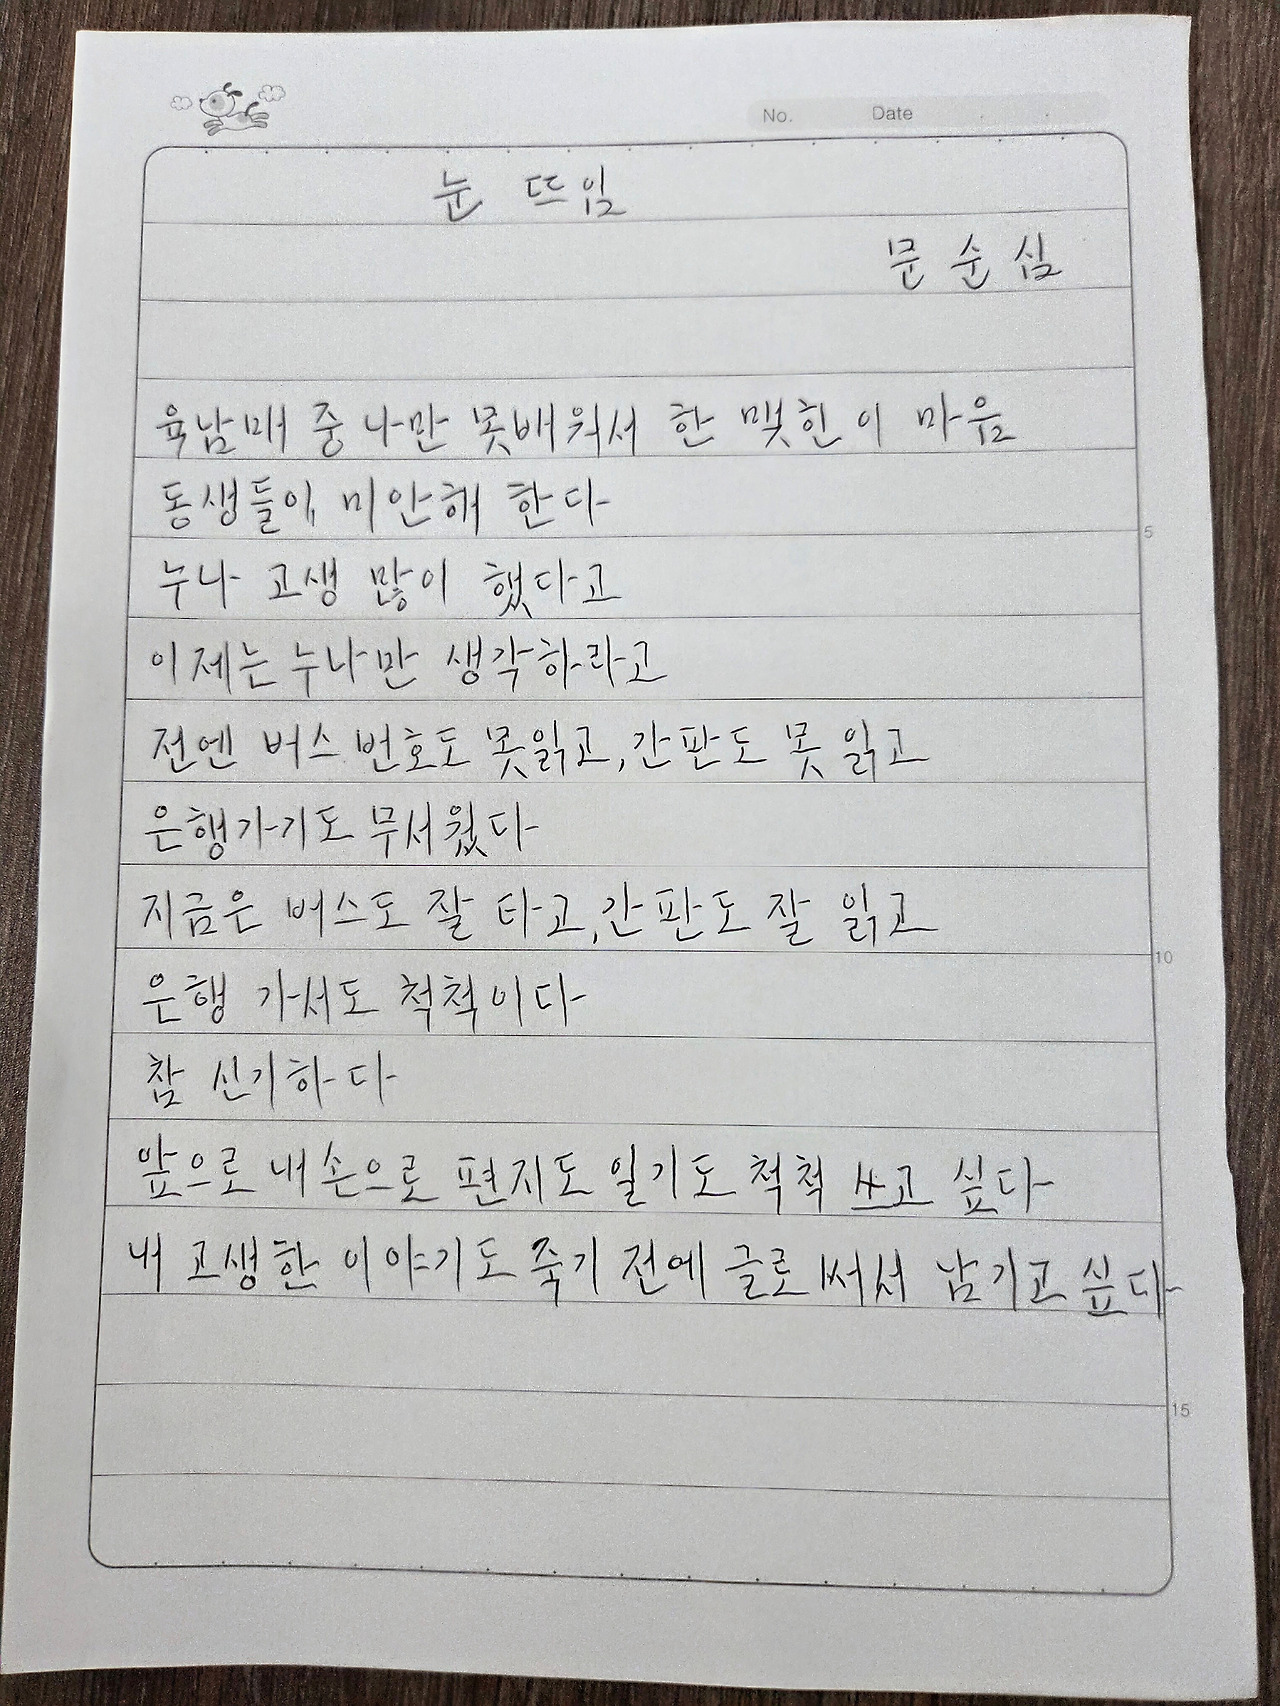 No. Date
눈 뜨임
문 순 심
육남매 중 나만 못배워서 한 맺힌 이 마음
동생들이 미안해 한다
누나 고생 많이 했다고
이제는 누나만 생각하라고
전엔 버스 번호도 못읽고, 간판도 못 읽고
은행가기도 무서웠다
5
지금은 버스도 잘 타고, 간판도 잘 읽고
은행 가서도 척척이다
10
참 신기하다
앞으로 내 손으로 편지도 일기도 척척 쓰고 싶다
내 고생한 이야기도 죽기 전에 글로 써서 남기고 싶다
15